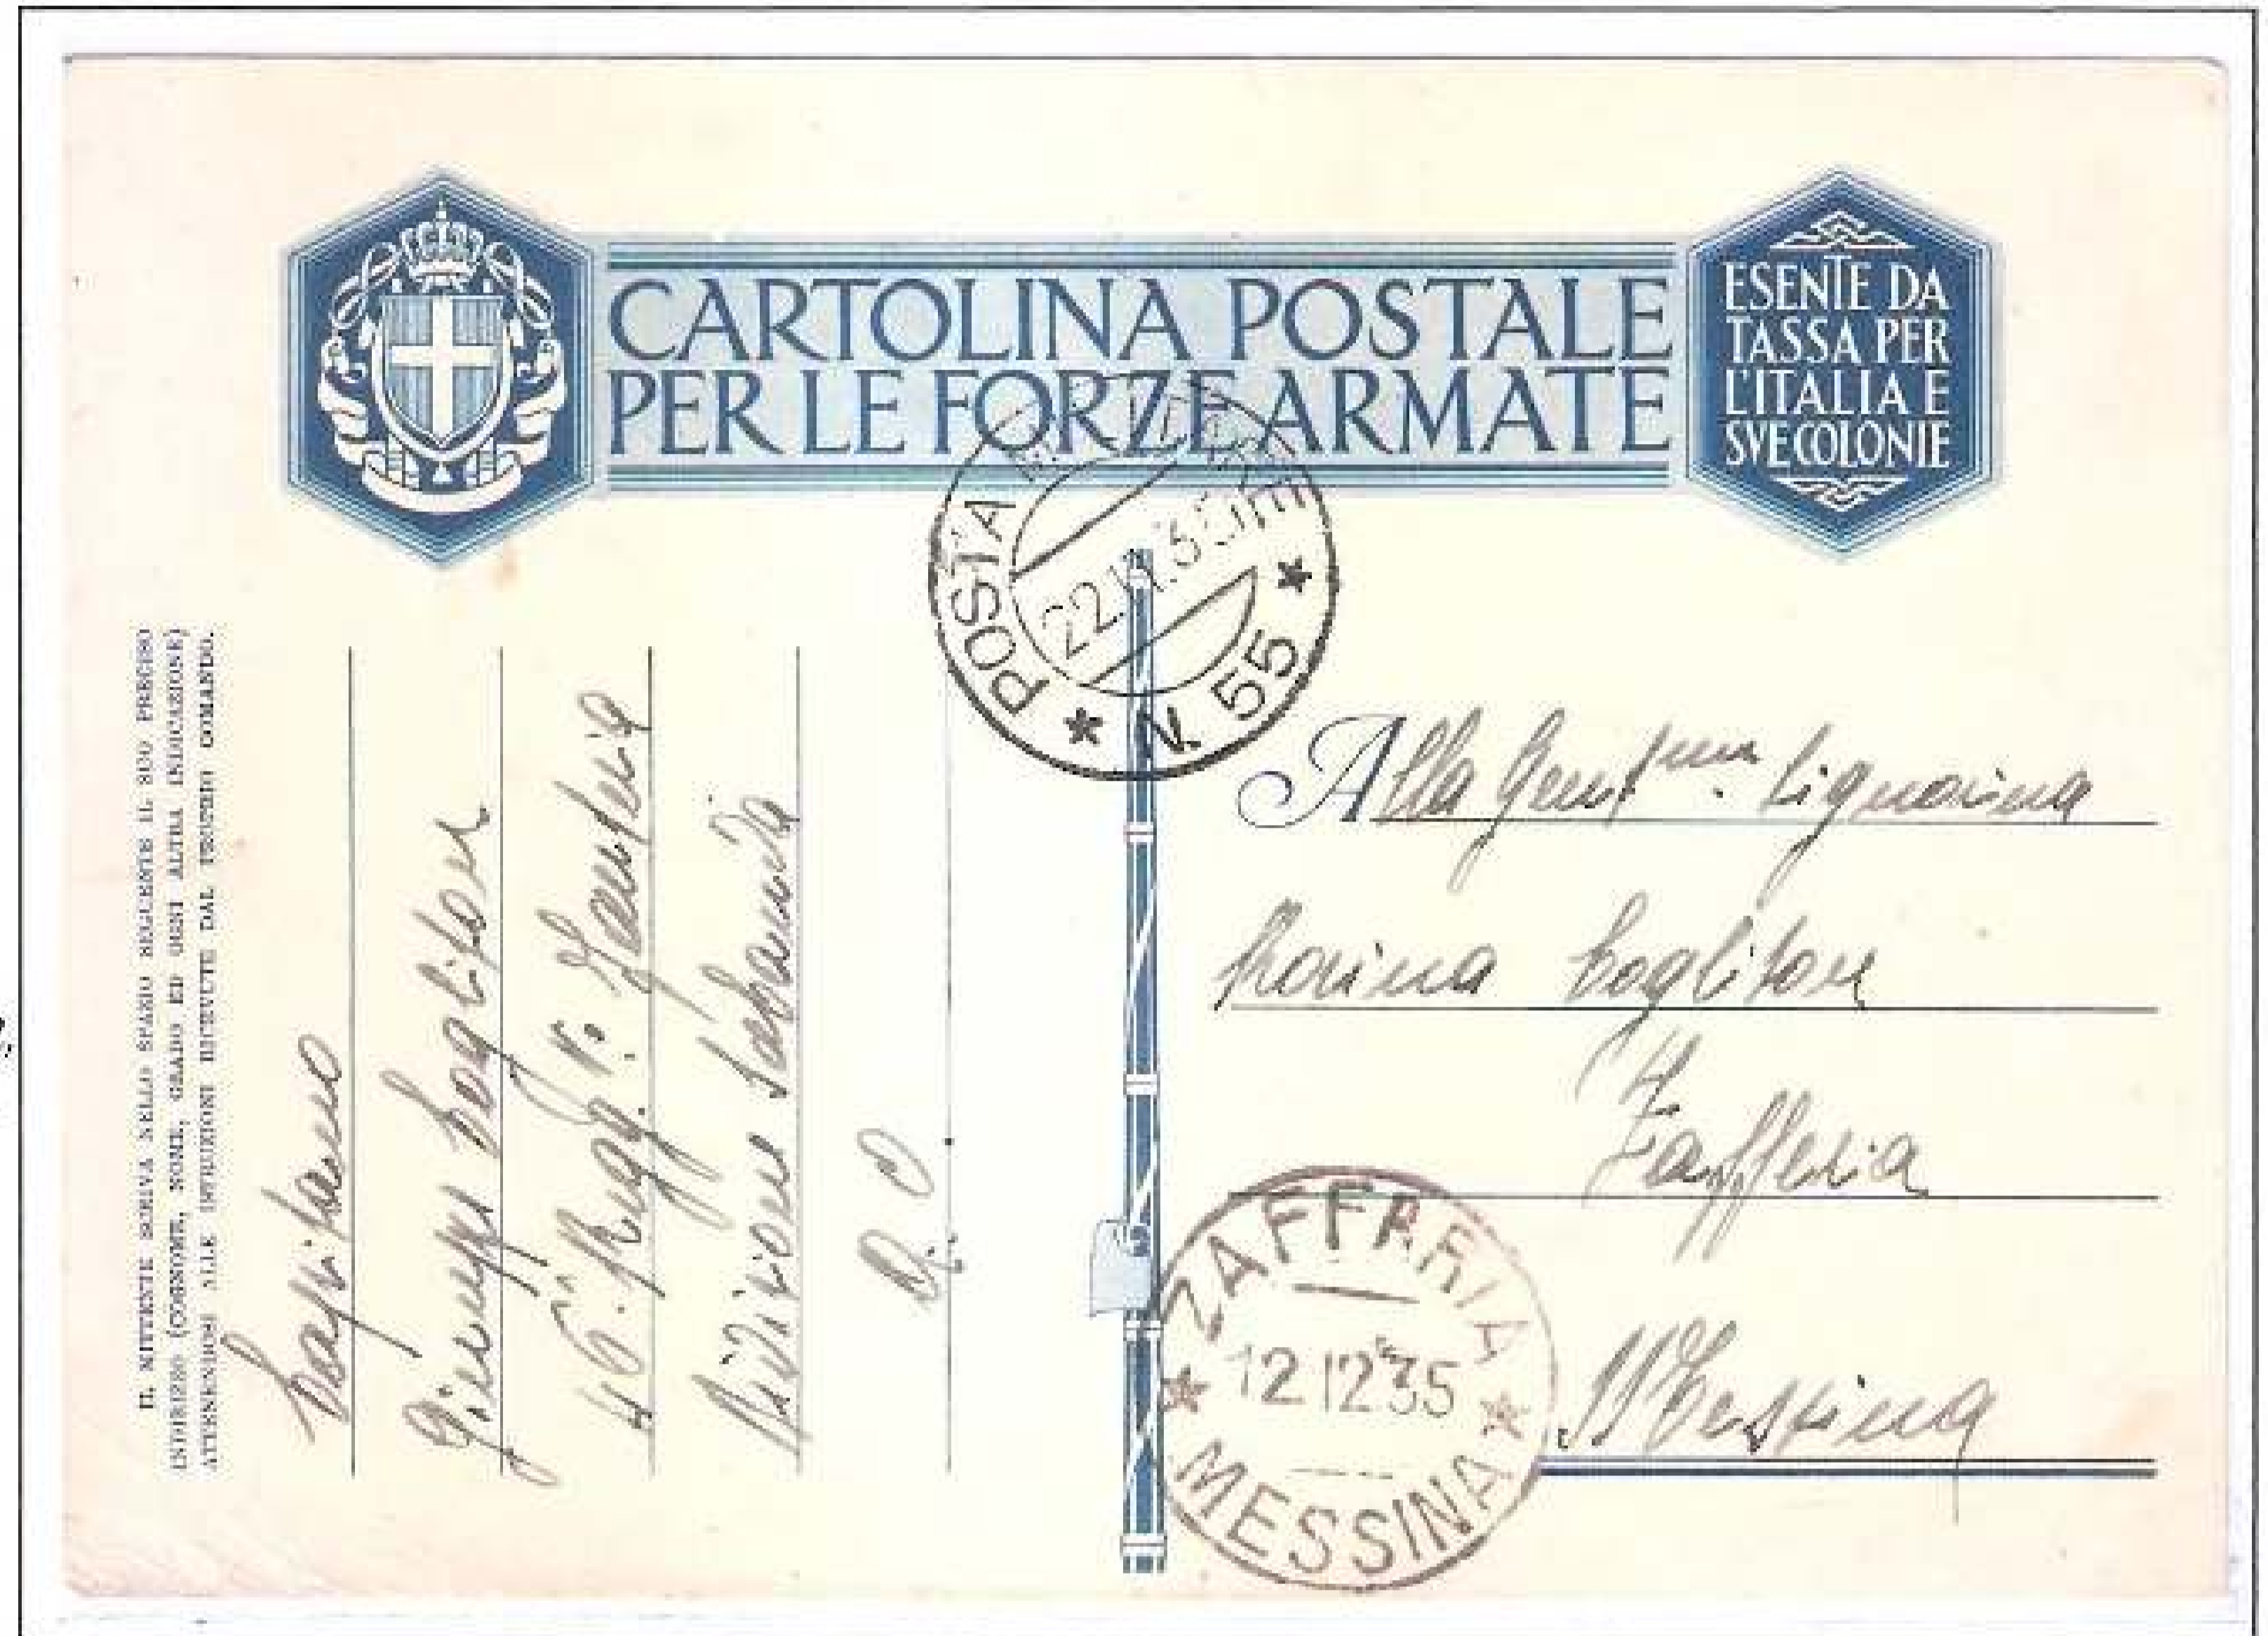 CARTOLINA POSTALE
PER LE FORZE ARMATE
ESENTE DA
TASSA PER
L'ITALIA E
SVE COLONIE
POSTA MILITARE
22.11.35
* N 55 *
IL MITTENTE SCRIVA NELLO SPAZIO SEGUENTE IL SUO PRECISO
INDIRIZZO (COGNOME, NOME, GRADO ED OGNI ALTRA INDICAZIONE)
ATTENENDOSI ALLE ISTRUZIONI RICEVUTE DAL PROPRIO COMANDO.
Capitano
Giuseppe Coglitore
46°. Regg. Fanteria
Divisione Sabauda
A. O.
Alla Gent.ma Signorina
Coglitore
Zafferia
Messina
ZAFFARIA
12 12 35
* MESSINA *